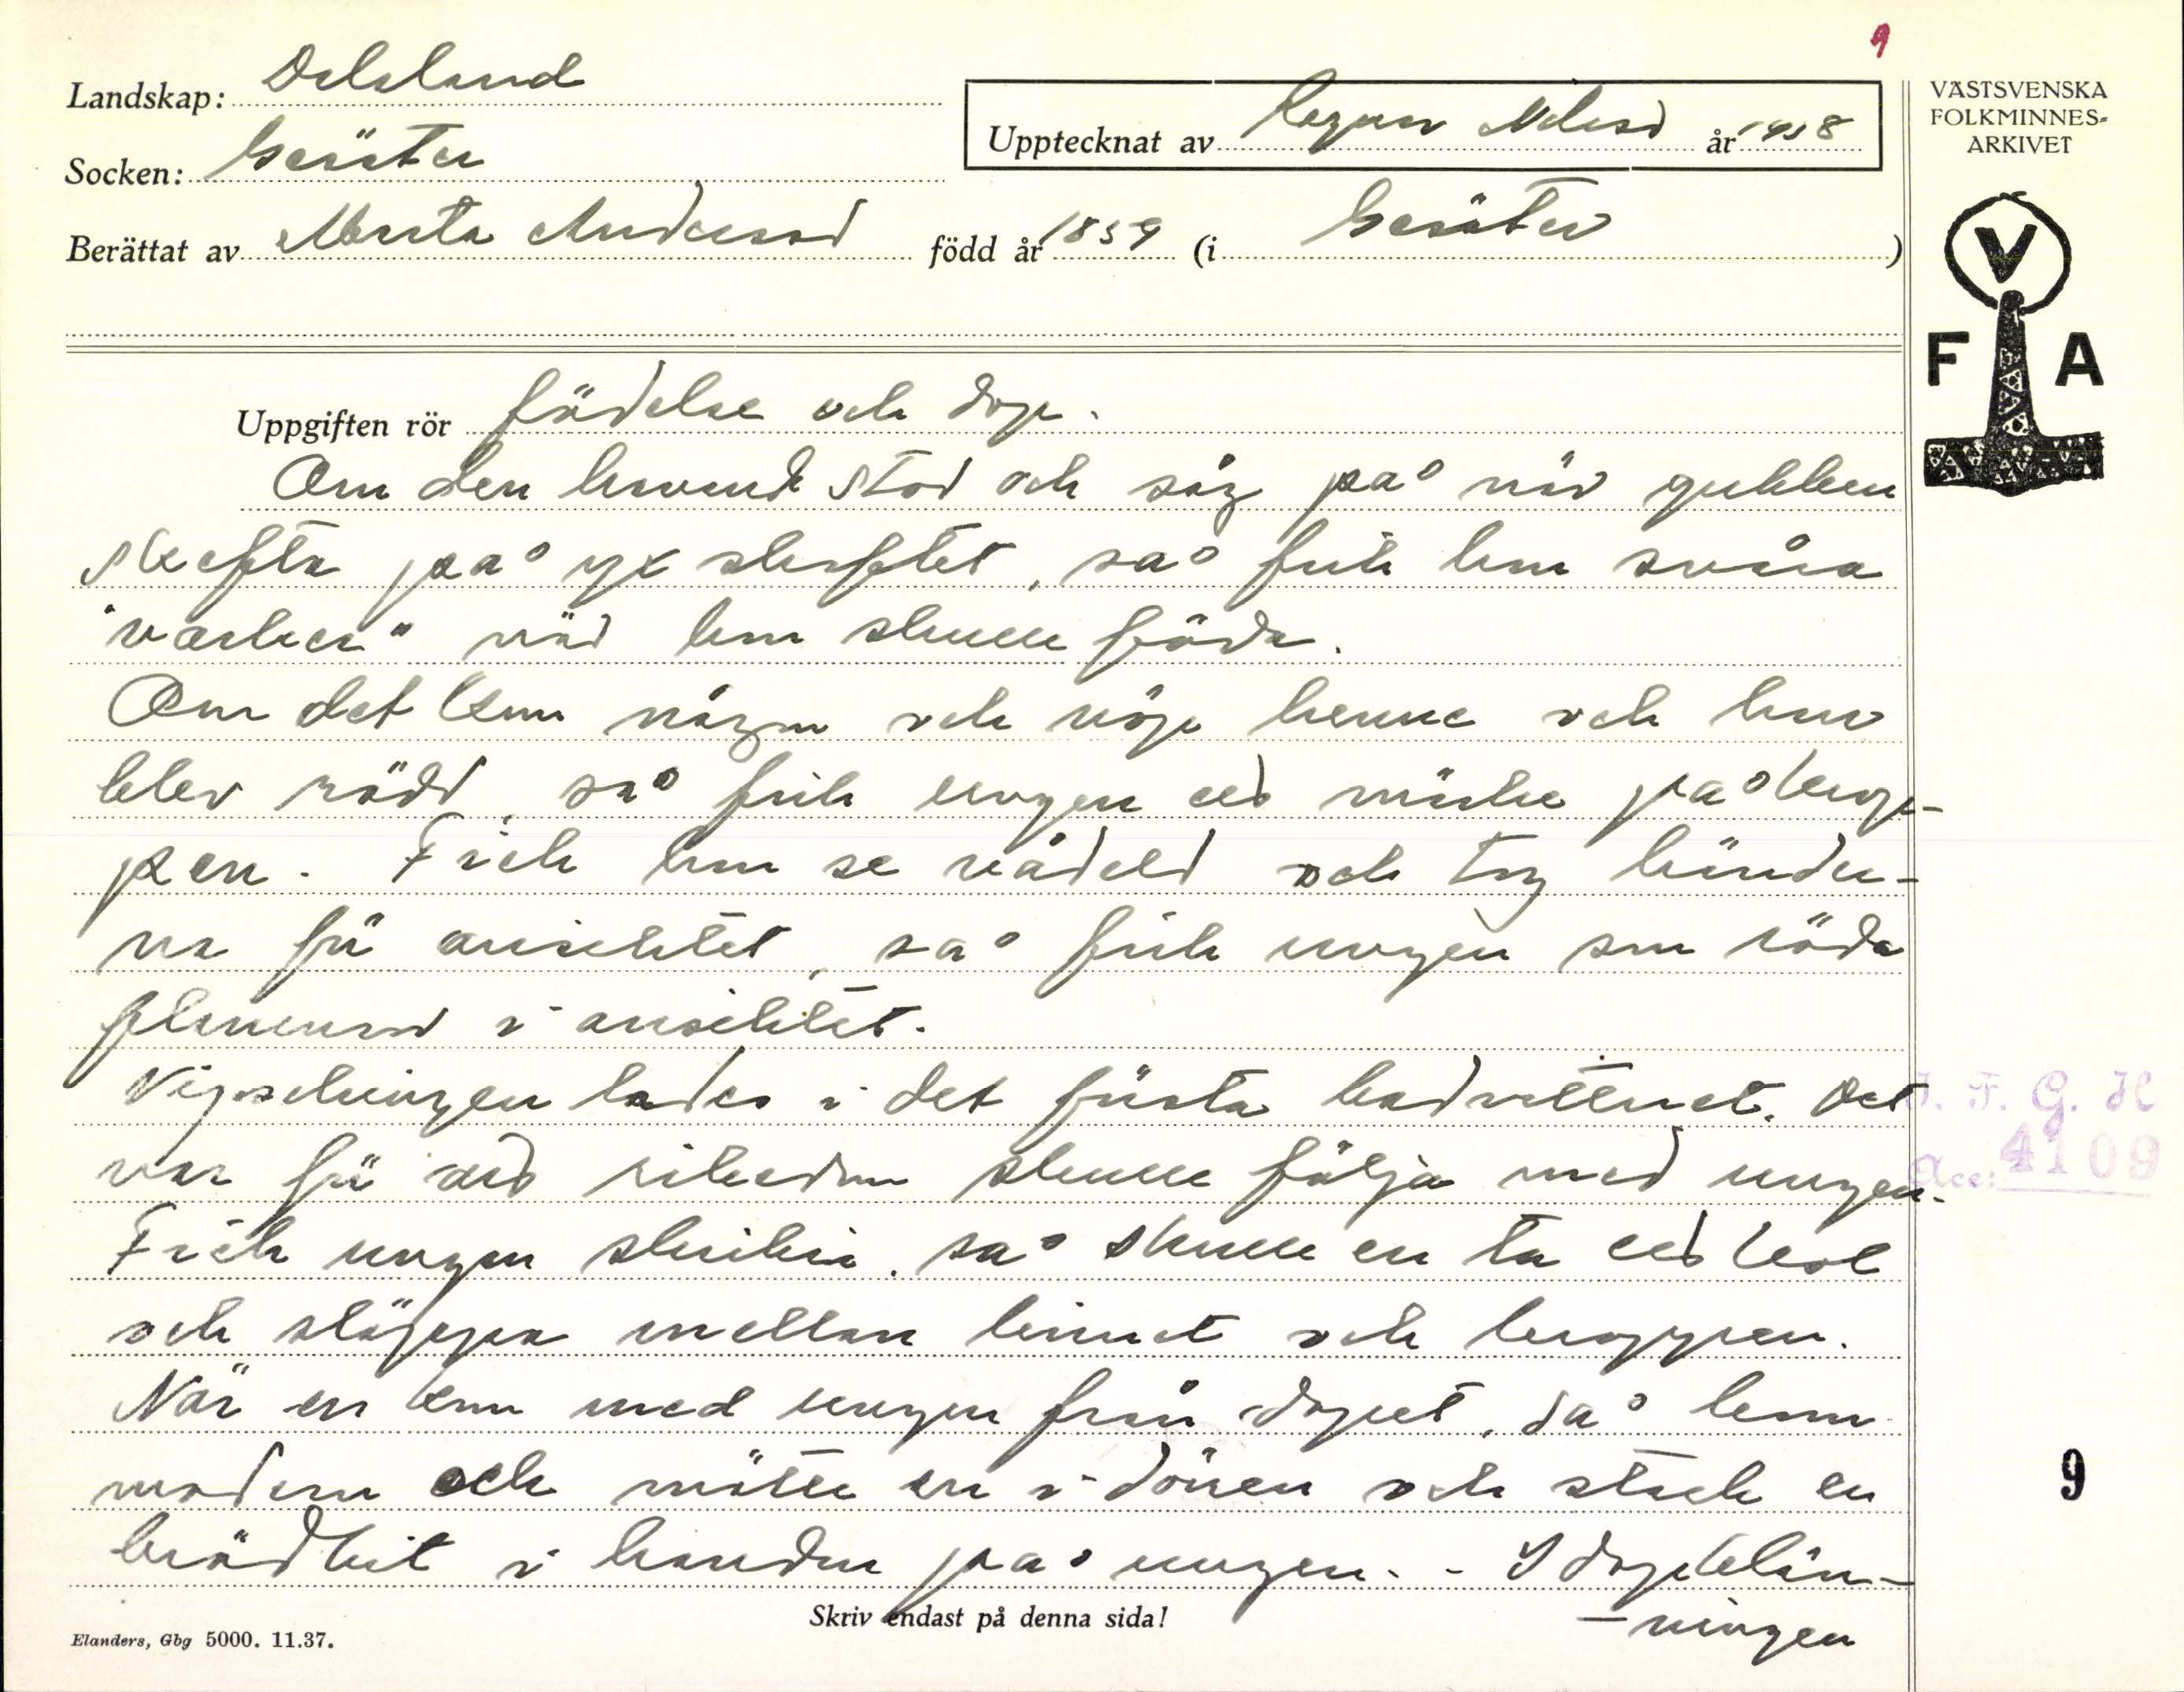 9
Landskap: Dalsland
Socken: Gesäter
Upptecknat av Ragnar Nilsson år 1938
VÄSTSVENSKA
FOLKMINNES-
ARKIVET
Berättat av Marta Andersson född år 1859 (i Gesäter)
V
F A
Uppgiften rör födelse och dop.
Om den havande stod och såg på när gubben
skefta på yxskaftet, så fick hon svåra
"värker" när hon skulle föda.
Om det kom någon och röp henne och hon
blev rädd, så fick ungen ett märke på krop-
pen. Fick hon se vådeld och tog händer-
na för ansiktet, så fick ungen som röda
flammor i ansiktet.
Vigselringen lades i det första badvattnet. Det
var för att rikedom skulle följa med ungen.
Fick ungen skrikri, så skulle en ta ett kol
och släppa mellan linnet och kroppen.
När en kom med ungen från dopet, då kom
modern och mötte en i dörren och stack en
brödbit i handen på ungen. - I dopklän-
-ningen
J. F. G. H
Acc: 4109
9
Skriv endast på denna sida!
Elanders, Gbg 5000. 11.37.